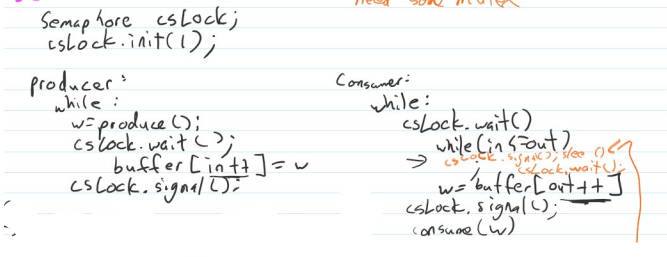 need some
Semaphore csLock;
csLock.init(1);
producer:
while:
w=produce();
csLock.wait();
buffer[in++]=w
csLock.signal();
Consumer:
while:
csLock.wait()
while(in<=out)
→ csLock.signal(); sleep()
csLock.wait();
w=buffer[out++]
csLock.signal();
consume(w)